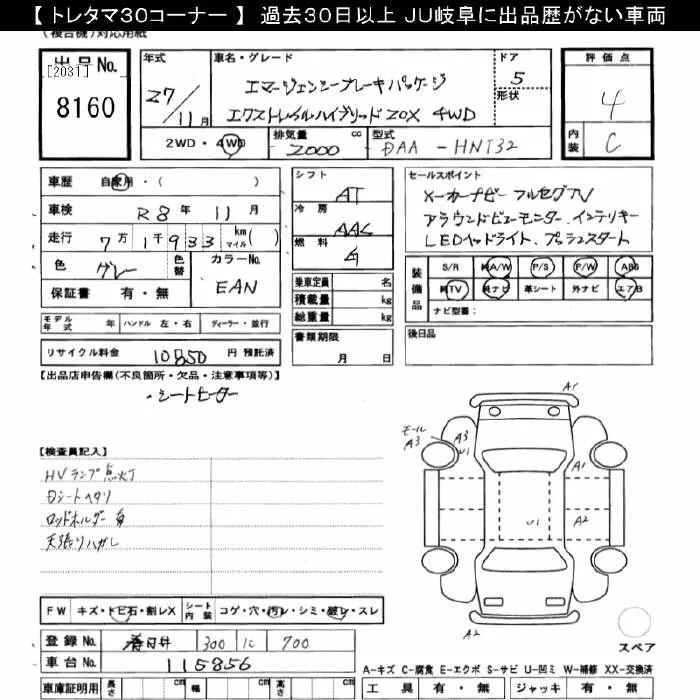 【 トレタマ30コーナー 】 過去30日以上 JU岐阜に出品歴がない車両
(複合機)対応用紙
出品No.
[2031]
8160
年式
27/11月
車名・グレード
エマージェンシーブレーキパッケージ
エクストレイルハイブリッド20X 4WD
ドア
5
形状
評価点
4
内装
C
2WD・4WD
排気量
2000
cc
型式
DAA-HNT32
車歴 自家用・( )
車検 R8年 11月
走行 7万 1千 933 km マイル ( )
色 グレー
色替
カラーNo.
EAN
保証書 有・無
シフト
AT
冷房
AAC
燃料
乗車定員 名
積載量 kg
総重量 kg
セールスポイント
メーカーナビ フルセグTV
アラウンドビューモニター、インテリキー
LEDヘッドライト、プッシュスタート
装備品
S/R 純A/W P/S P/W ABS
純TV 純ナビ 革シート 外ナビ エアB
ナビ型番:
モデル年式 年 ハンドル 左・右 ディーラー・並行
リサイクル料金 10850 円 預託済
書類期限
月 日
後日品
【出品店申告欄(不良箇所・欠品・注意事項等)】
・シートヒーター
【検査員記入】
HVランプ点灯
Dシートヘタリ
ロッドホルダー有
天張りハガレ
A1
モール
A3
A3
U1
A1
U1
A2
A2
スペア
FW キズ・トビ石・割レX
シート内装 コゲ・穴・汚レ・シミ・破レ・スレ
登録No. 春日井 300 に 700
車台No. 115856
車庫証明用 長さ cm 幅 cm 高さ cm
A-キズ C-腐食 E-エクボ S-サビ U-凹ミ W-補修 XX-交換済
工具 有・無 ジャッキ 有・無